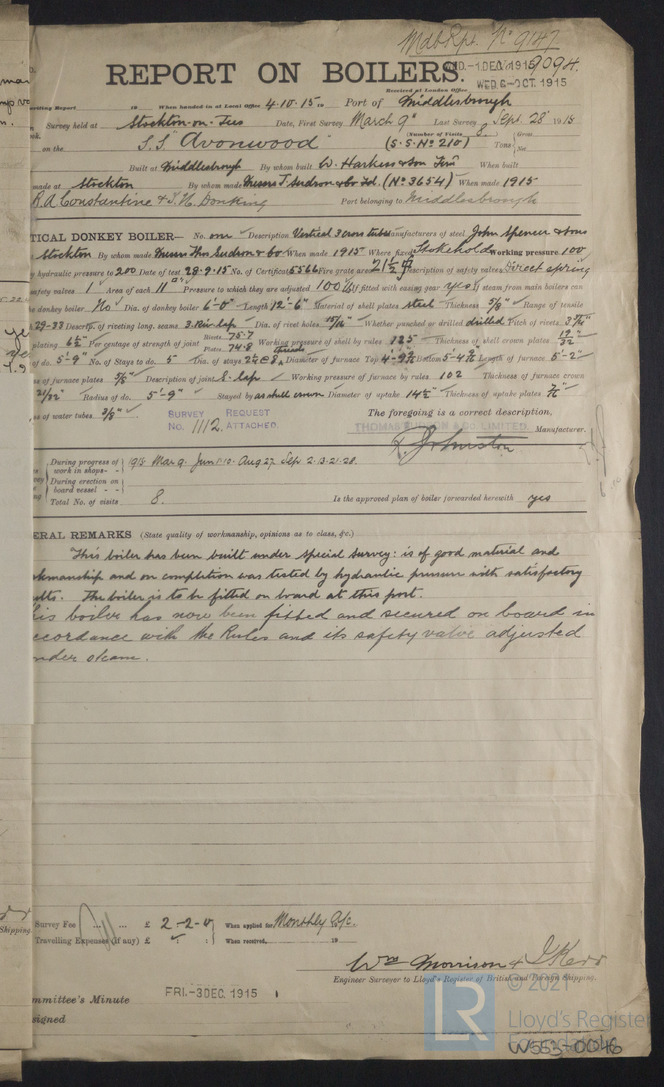 Mdb Rpt. No 9147
WED.-1 DEC 1915 9094.
REPORT ON BOILERS.
Received at London Office WED. 6-OCT. 1915
writing Report 19 When handed in at Local Office 4.10.15 19 Port of Middlesbrough
Survey held at Stockton-on-Tees Date, First Survey March 9th Last Survey Sept. 28 1915
(Number of Visits 8)
on the S.S Avonwood (S.S. No 210) Tons { Gross Net
Built at Middlesbrough By whom built W. Harkess & Son When built
made at Stockton By whom made Messrs T Sudron & Co Ltd. (No 3654) When made 1915
R.A Constantine & T.H. Donking Port belonging to Middlesbrough
TICAL DONKEY BOILER— No. one Description Vertical 3 cross tubes Manufacturers of steel John Spencer & Sons
Stockton By whom made Messrs Thos Sudron & Co When made 1915 Where fixed Stokehold Working pressure 100
by hydraulic pressure to 200 Date of test 28.9.15 No. of Certificate 5566 Fire grate area 21½ Description of safety valves Direct spring
safety valves 1 Area of each 11 Pressure to which they are adjusted 100 If fitted with easing gear yes If steam from main boilers can
the donkey boiler No Dia. of donkey boiler 6'-0" Length 12'-6" Material of shell plates steel Thickness 5/8" Range of tensile
29-33 Descrip. of riveting long. seams 3. Riv. Lap Dia. of rivet holes 15/16" Whether punched or drilled drilled Pitch of rivets
plating 6½ Per centage of strength of joint Rivets 75.7 Plates 74.8 Working pressure of shell by rules 125 Thickness of shell crown plates 19/32
of do. 5'-9" No. of Stays to do. 5 Dia. of stays Diameter of furnace Top Bottom Length of furnace 5'-2"
of furnace plates 5/8" Description of joint S. Lap Working pressure of furnace by rules 102 Thickness of furnace crown
21/32" Radius of do. 5'-9" Stayed by as shell crown Diameter of uptake 14½" Thickness of uptake plates
of water tubes 3/8"
SURVEY REQUEST
No. 1112. ATTACHED.
The foregoing is a correct description,
THOMAS SUDRON & CO LIMITED. Manufacturer.
R. Johnston
During progress of work in shops - - 1915 Mar 9. Jun 1.10. Aug 27. Sep 2.13.21.28.
During erection on board vessel - -
Total No. of visits 8. Is the approved plan of boiler forwarded herewith yes
ERAL REMARKS (State quality of workmanship, opinions as to class, &c.)
This boiler has been built under special survey: is of good material and
kmanship and on completion was tested by hydraulic pressure with satisfactory
ults. The boiler is to be fitted on board at this port.
his boiler has now been fitted and secured on board in
ccordance with the Rules and its safety valve adjusted
nder steam.
Survey Fee ... ... £ 2-2-0 When applied for, Monthly a/c.
Travelling Expenses (if any) £ : : When received, 19
Wm Morrison & J. Kerr
Engineer Surveyor to Lloyd's Register of British and Foreign Shipping.
mmittee's Minute FRI.-3 DEC. 1915
signed
Shipping.
LR © 2021
Lloyd's Register
W553-0046